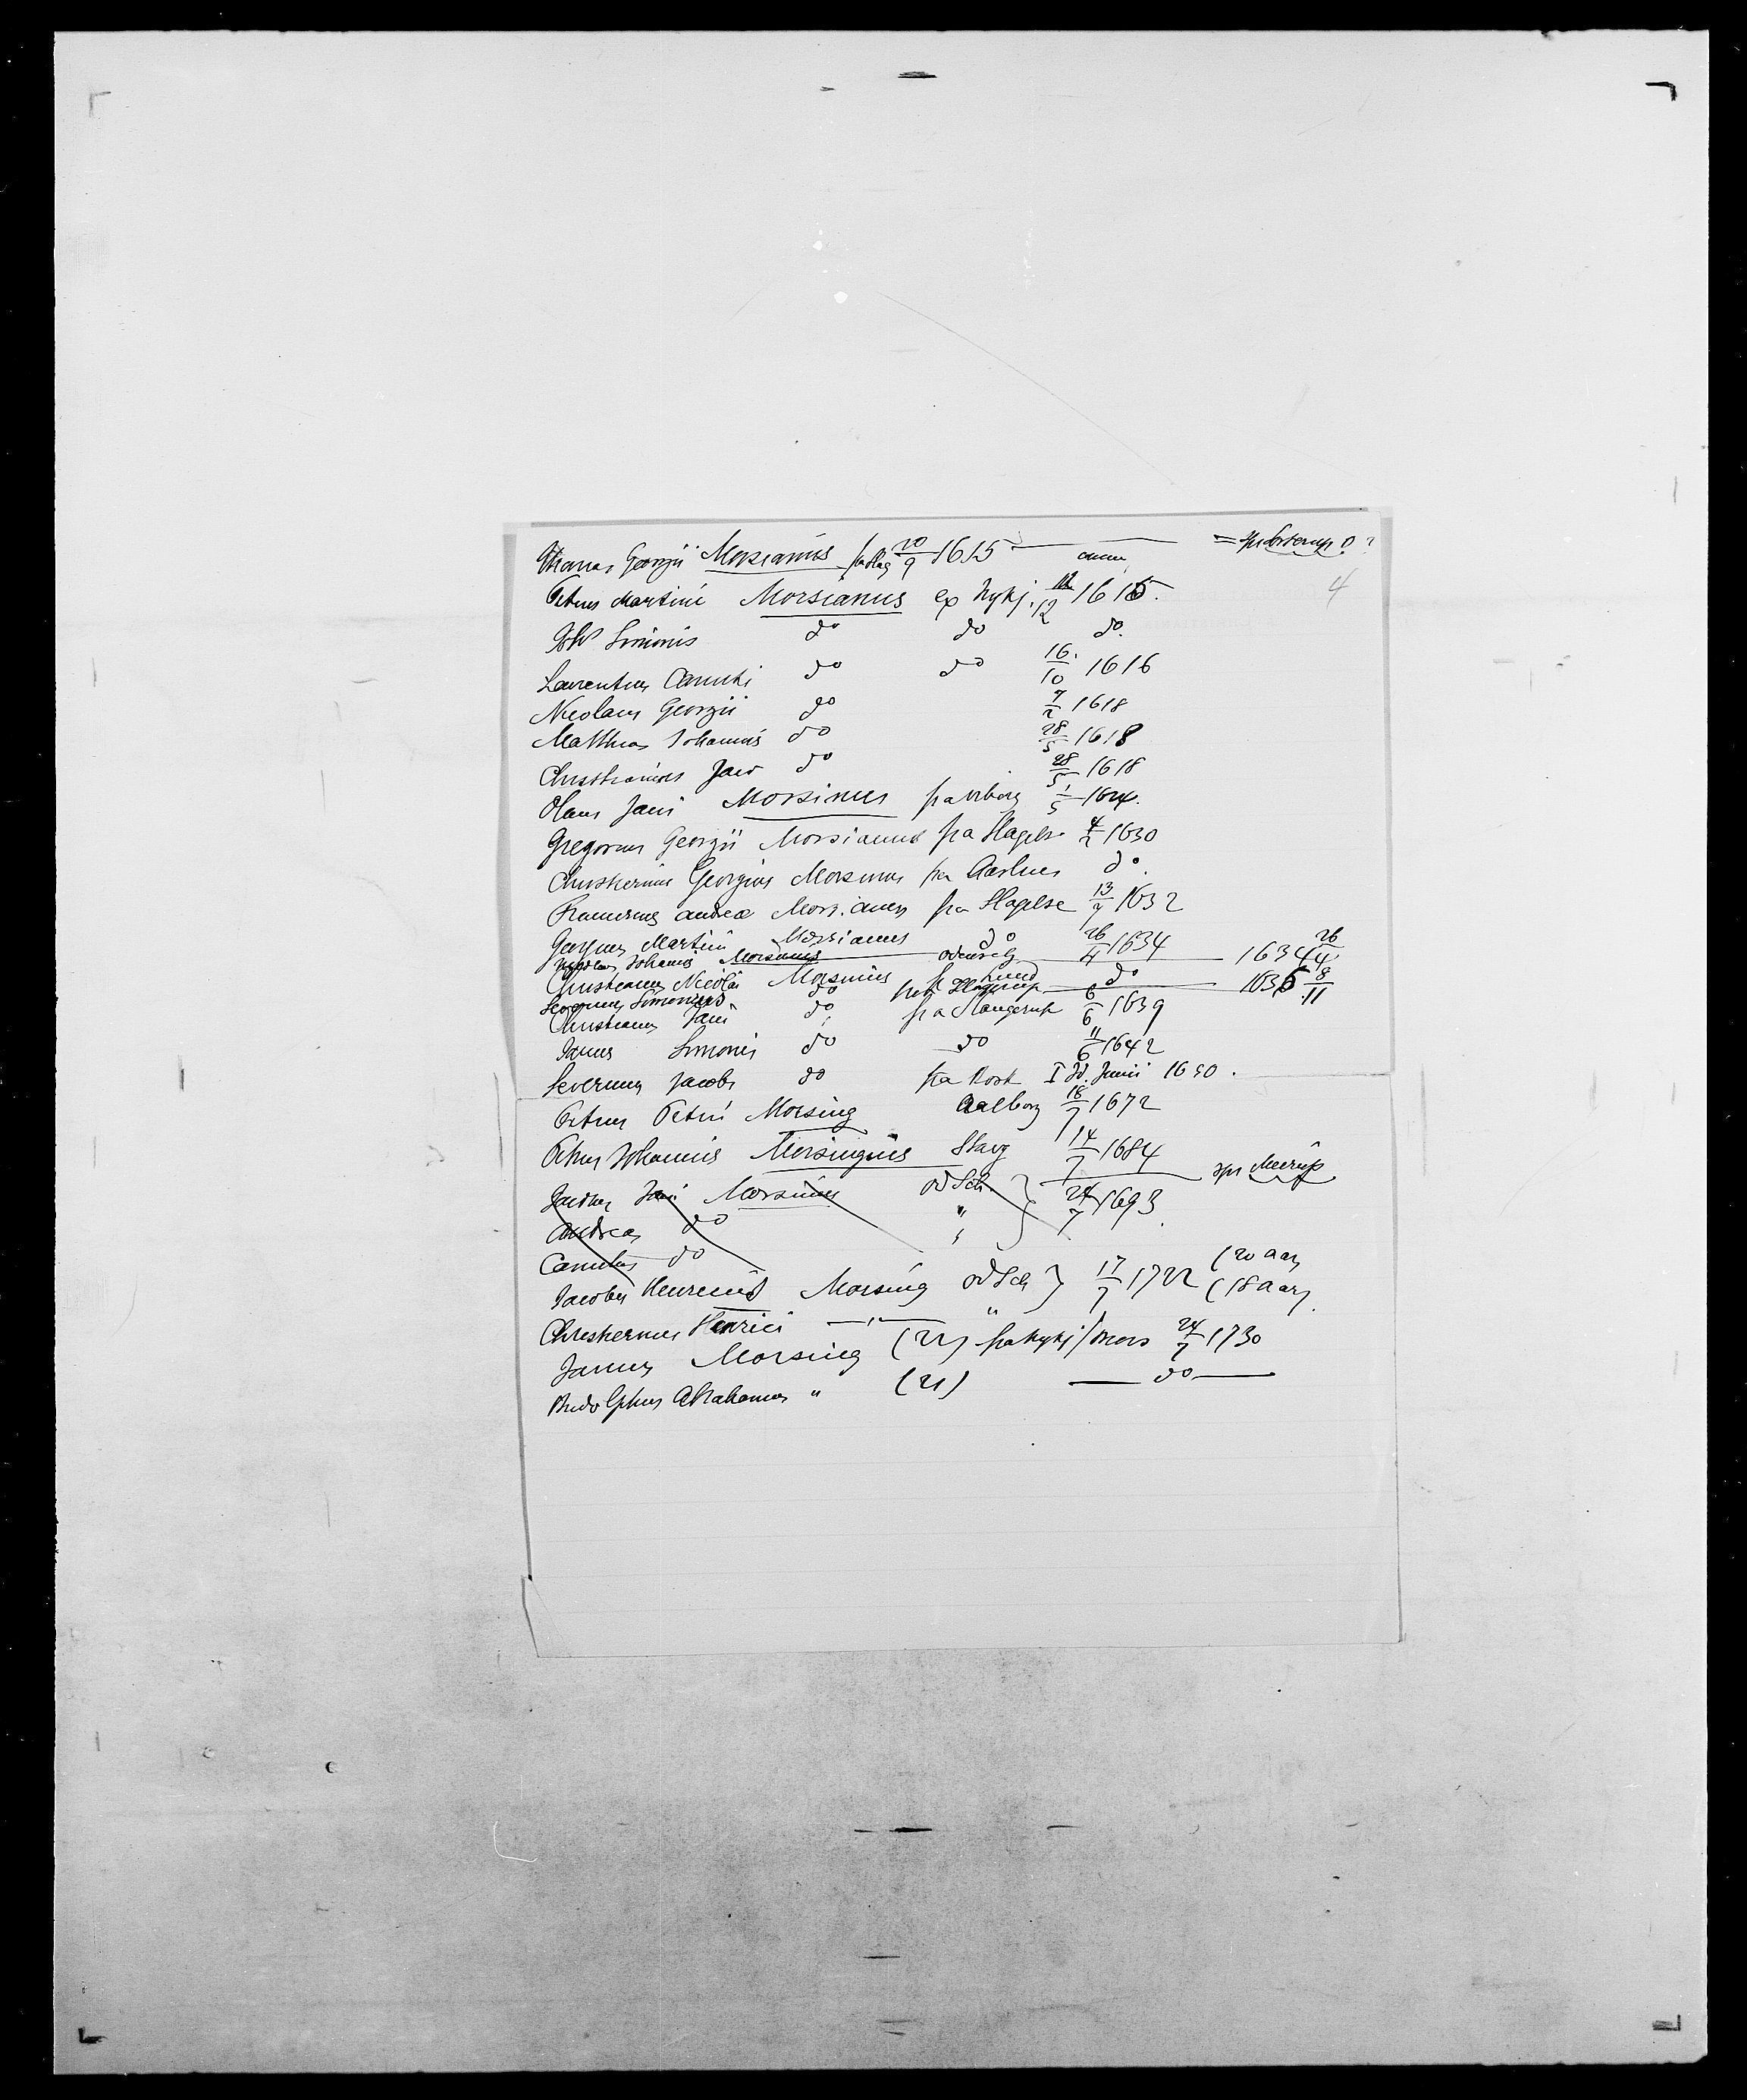 Thomas Georgii Morsianus fra Slag 20/9 1615 — = spr Sorterup ? ?
Petrus Martini Morsianus ex Nykj. 12/12 1615. 4
Joh Simonis do do do.
Laurentius Canuti do do 16/10 1616
Nicolaus Georgii do 7/2 1618
Matthias Johannis do 28/5 1618
Christianus Jani do 28/5 1618
Olaus Jani Morsinus fra Viborg 1/5 1624.
Gregorius Georgii Morsianus fra Slagelse 4/2 1630
Christiernus Georgius Morsinus fra Aarhus do.
andreæ Morsianus fra Slagelse 13/7 1632
Martini Morsianus do 26/4 1634
Johannis Morsinus odensely 1634 26/4
Christianus Nicolai Morsinus fra do
Simonius do 1636 8/11
Christianus Jani do fra Slangerup 6/6 1639
Janus Simonis do do 11/6 1642
Severinus Jacobi do fra Rosk I Id. Junii 1650.
Petrus Petri Morsing Aalborg 18/7 1672
Petrus Johannis Morsingius Slavg 14/7 1684
Jani Morsinus od Sch. } 24/7 1693 spr Meerup
Andreas do "
Canutus do "
Jacobus Henrecius Morsing od Sch } 17/7 1722 (20 aar)
Christiernus Henrici — " — " (18 aar)
Janus Morsing (22) fra Nykj / Mors 24/7 1730
Rudolphus Abrahamus " (21) — do —